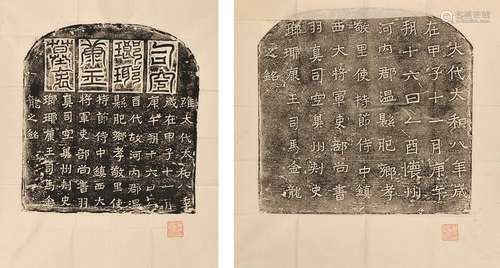 司空
瑯琊
康王
墓表
維大代太和八年
歲在甲子十一月
庚午朔十六日乙
酉代故河內郡溫
縣肥鄉孝敬里使
持節侍中鎮西大
將軍吏部尚書羽
真司空冀州刺史
瑯琊康王司馬金
龍之銘
大代太和八年歲
在甲子十一月庚午
朔十六日乙酉懷州
河內郡溫縣肥鄉孝
敬里使持節侍中鎮
西大將軍吏部尚書
羽真司空冀州刺史
瑯琊康王司馬金龍
之銘